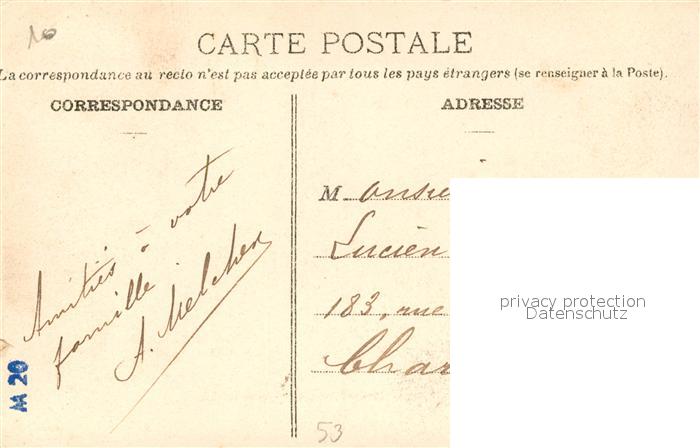 10
CARTE POSTALE
La correspondance au recto n'est pas acceptée par tous les pays étrangers (se renseigner à la Poste).
CORRESPONDANCE
ADRESSE
Amitiés à votre
famille
A. Melcher
Monsieu
Lucien
183, rue
Char
M 20
53
privacy protection
Datenschutz